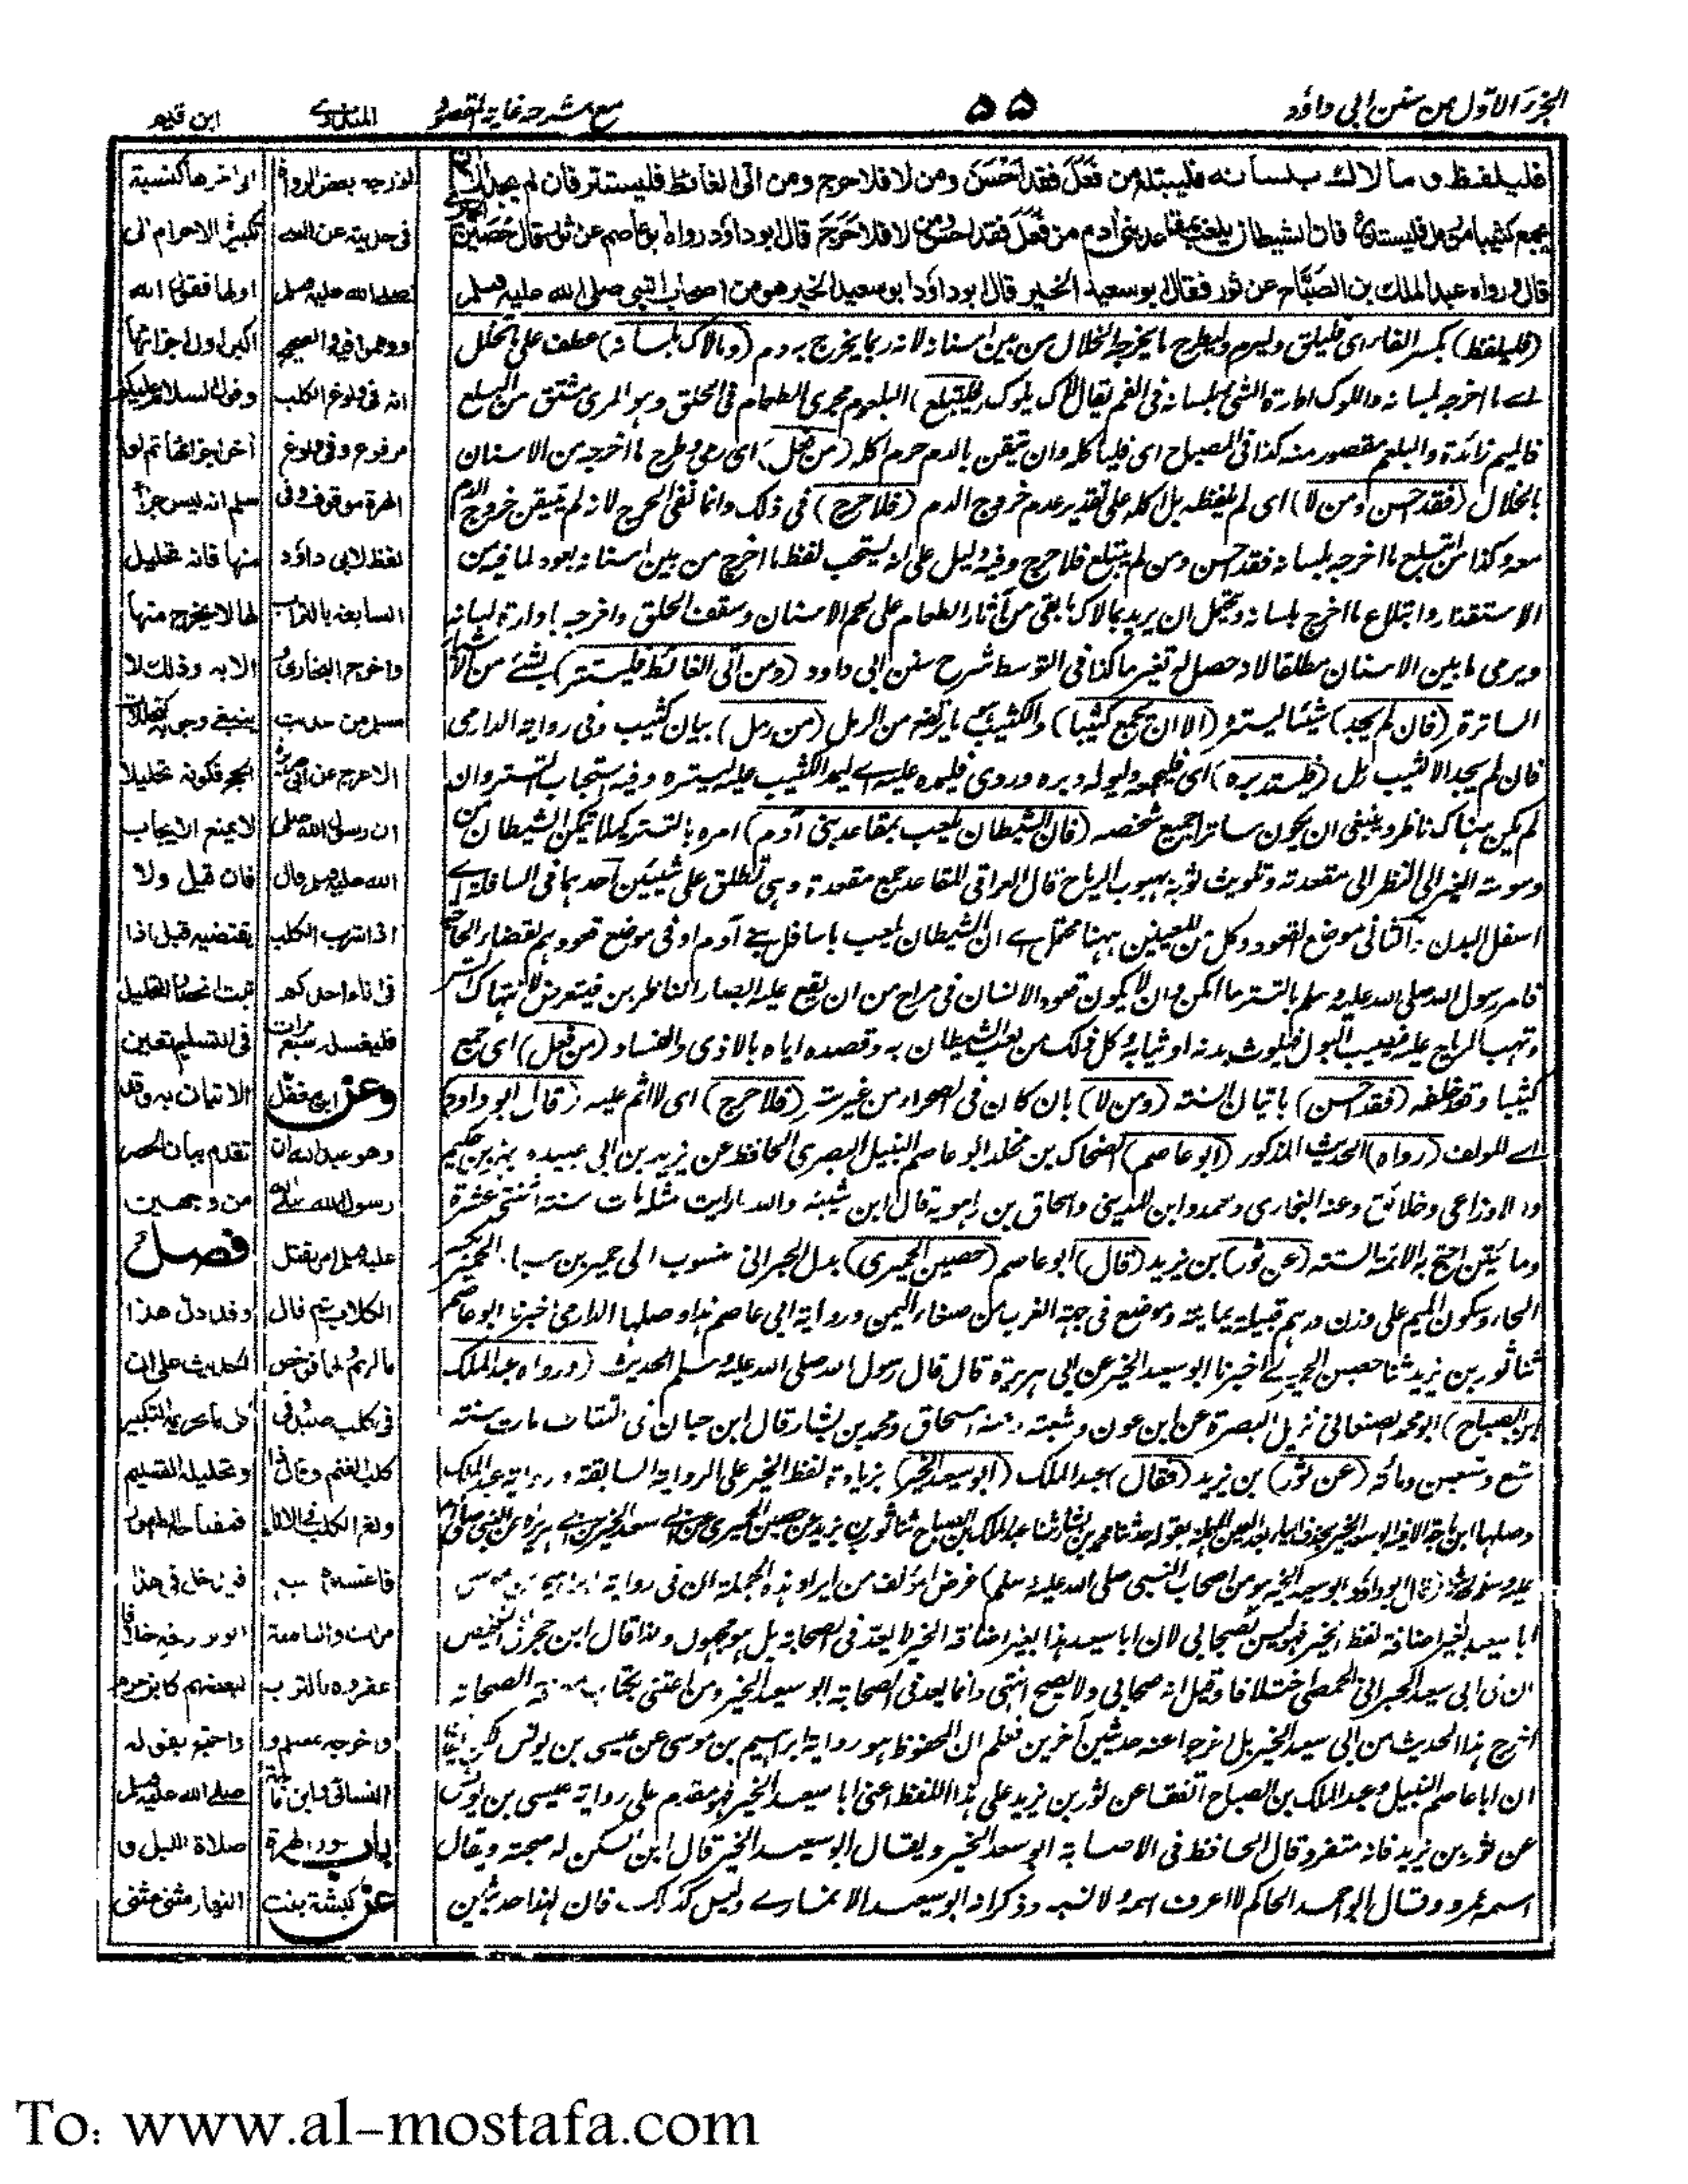 الجزء الاوّل من سنن ابی داوٗد
۵۵
مع شرحه غایة المقصود
المنذری
ابن قیم
فلیلفظ وما لاك بلسانه فلیبتلع من فَعَلَ فقد اَحْسَنَ ومن لا فلا حرج ومن اتی الغائط فلیستتر فان لم یجد الا ان
یجمع کثیبا من رمل فلیستدبره فان الشیطان یلعب بمقاعد بنی اٰدم من فَعَلَ فقد احسن ومن لا فلا حَرَجَ قال ابوداوٗد رواه ابو عاصم عن ثور قال حُصَین الحمیری
قال ورواه عبد الملك بن الصَبَّاح عن ثور فقال ابو سعید الخیر قال ابو داوٗد ابو سعید الخیر هو من اصحاب النبی صلی الله علیه وسلم
(فلیلفظ) بکسر الفاء ای فلیلق ولیرم ولیطرح ما یخرجه الخلال من بین اسنانه لانه ربما یخرج به دم (وما لاک بلسانه) عطف علی تخلل
اے ما اخرجه بلسانه واللوک ادارة الشئ بلسانه فی الفم یقال لاک یلوک (فلیبتلع) البلعوم مجری الطعام فی الحلق وهو المرئ مشتق من البلع
فالمیم زائدة والبلعم مقصور منه کذا فی المصباح ای فلیاکله وان تیقن بالدم حرم اکله (من فعل) ای رمی وطرح ما اخرجه من الاسنان
بالخلال (فقد احسن ومن لا) ای لم یلفظه بل اکله علی تقدیر عدم خروج الدم (فلا حرج) فی ذلک وانما نفی الحرج لانه لم یتیقن خروج الدم
معه وکذا من ابتلع ما اخرجه بلسانه فقد احسن ومن لم یبتلع فلا حرج وفیه دلیل علی انه یستحب لفظ ما اخرج من بین اسنانه بعود لما فیه من
الاستقذار وابتلاع ما اخرج بلسانه ویحتمل ان یرید بما لاک ما بقی من آثار الطعام علی لحم الاسنان وسقف الحلق واخرجه بادارة لسانه
ویرمی ما بین الاسنان مطلقا لانه حصل له تغیر ما کذا فی التوسط شرح سنن ابی داود (ومن اتی الغائط فلیستتر) بشئے من الاشیاء
الساترة (فان لم یجد) شیئا یستره (الا ان یجمع کثیبا) والکثیب هو ما ارتفع من الرمل (من رمل) بیان کثیب وفی روایة الدارمی
فان لم یجد الا کثیب رمل (فلیستدبره) ای فلیجمعه ولیوله دبره وروی فلیمده علیه اے لیمد الکثیب علیه لیستره وفیه استحباب التستر وان
لم یکن هناک ناظر وینبغی ان یکون ساترا جمیع شخصه (فان الشیطان یلعب بمقاعد بنی آدم) امره بالتستر کیلا یتمکن الشیطان من
وسوسة الغیر الی النظر الی مقعدته وتلویث ثوبه بهبوب الریاح قال العراقی المقاعد جمع مقعدة وهی تطلق علی شیئین احدهما فی السافلة اے
اسفل البدن والثانی موضع القعود وکل من المعنیین ههنا محتمل اے ان الشیطان یلعب باسافل بنی آدم او فی موضع قعودهم لقضاء الحاجة
فامر رسول الله صلی الله علیه وسلم بالتستر ما امکن وان لا یکون قعود الانسان فی مراح من ان یقع علیه ابصار الناظرین فیتعرض لانتهاک الستر
وتهب الریاح علیه فیصیب البول فیلوث بدنه او ثیابه وکل ذلک من لعب الشیطان به وقصده ایاه بالاذی والفساد (من فعل) ای جمع
کثیبا وقعد خلفه (فقد احسن) باتیان السنة (ومن لا) بان کان فی الصحراء من غیر ستر (فلا حرج) ای لا اثم علیه (قال ابو داود)
اے المولف (رواه) الحدیث المذکور (ابو عاصم) الضحاک بن مخلد ابو عاصم النبیل البصری الحافظ عن یزید بن ابی عبیده وبهز بن حکیم
والاوزاعی وخلائق وعنه البخاری واحمد وابن المدینی واسحاق بن راهویه قال ابن شیبة والله ما رایت مثله مات سنة اثنتی عشرة
ومائتین احتج به الائمة الستة (عن ثور) بن یزید (قال) ابو عاصم (حصین الحمیری) بدل الحبرانی منسوب الی حمیر بن سبا. الحمیر بکسر
الحاء وسکون المیم علی وزن درهم قبیلة یمانیة وموضع فی جهة الغرب من صنعاء الیمن وروایة ابی عاصم هذا وصلها الدارمی اخبرنا ابو عاصم
ثنا ثور بن یزید ثنا حصین الحمیری اخبرنا ابو سعید الخیر عن ابی هریرة قال قال رسول الله صلی الله علیه وسلم الحدیث (ورواه عبد الملک
بن الصباح) ابو محمد الصنعانی نزیل البصرة عن ابن عون وشعبة وعنه اسحاق ومحمد بن بشار قال ابن حبان فی الثقات مات سنة
تسع وتسعین ومائة (عن ثور) بن یزید (فقال) عبد الملک (ابو سعید الخیر) بزیادة لفظ الخیر علی الروایة السابقة وروایة عبد الملک
علیه وسلم (قال ابو داود ابو سعید الخیر هو من اصحاب النبی صلی الله علیه وسلم) غرض المؤلف من ایراد هذه الجملة ان فی روایة ابراهیم بن موسی
ابا سعید بغیر اضافة لفظ الخیر فهو لیس بصحابی لان ابا سعید هذا بغیر اضافة الخیر لا یعد فی الصحابة بل هو مجهول ولذا قال ابن حجر فی التلخیص
ان فی ابی سعید الحبرانی الحمصی اختلافا وقیل انه صحابی ولا یصح انتهی وانما یعد فی الصحابة ابو سعید الخیر ومن اعتنی بکتاب معرفة الصحابة
اخرج هذا الحدیث من ابی سعید الخیر بل اخرجا عنه حدیثین آخرین فعلم ان المحفوظ هو روایة ابراهیم بن موسی عن عیسی بن یونس
ان ابا عاصم النبیل وعبد الملک بن الصباح اتفقا عن ثور بن یزید علی هذا اللفظ اعنی ابا سعید الخیر فهو مقدم علی روایة عیسی بن یونس
عن ثور بن یزید فانه متفرد وقال الحافظ فی الاصابة ابو سعد الخیر ویقال ابو سعید الخیر قال ابن السکن له صحبة ویقال
اسمه عمرو وقال ابو احمد الحاکم لا اعرف اسمه ولا نسبه وذکر انه ابو سعید الانمارے ولیس کذلک فان لهذا حدیثین
بعض الرواة
فی حدیثه عن النبی
صلی الله علیه وسلم
ووهموا فیه والصحیح
انه فی ولوغ الکلب
مرفوع وفی ولوغ
الهرة موقوف وفی
لفظ لابی داوٗد
السابعة بالتراب
واخرج البخاری و
مسلم من حدیث
الاعرج عن ابی هریرة
ان رسول الله صلی
الله علیه وسلم قال
اذا شرب الکلب
فی اناء احدکم
فلیغسله سبع مرات
وعن ابن مغفل
وهو عبد الله ان
رسول الله صلی الله
علیه وسلم امر بقتل
الکلاب ثم قال
مالهم ولها فرخص
فی کلب الصید وفی
کلب الغنم وقال اذا
ولغ الکلب فی الاناء
فاغسلوه سبع
مرات والثامنة
عفروه بالتراب
واخرجه مسلم و
النسائی وابن ماجة
باب سور الهرة
عن کبشة بنت
الی اخرها کنسبة
تکبیرة الاحرام الی
اولها فقول الله
اکبر اول اجزائها
وقول السلام علیکم
آخر اجزائها ثم لو
سلم انه لیس جزأ
منها فانه تحلیل
لها لا یخرج منها
الا به وذلك لا
ینفی وجوبه کتحللات
الحج فکونه تحلیلا
لا یمنع الایجاب
فان قیل ولا
یقتضیه قیل اذا
ثبت انحصار التحلیل
فی التسلیم تعین
الاتیان به وقد
تقدم بیان الحصر
من وجهین
فصل
وقد دل هذا
الحدیث علی ان
کل ما تحریمه التکبیر
وتحلیله التسلیم
فمفتاحه الطهور
فیدخل فی هذا
الوتر رکعة خلافا
لبعضهم کابن حزم
واحتج بقوله
صلی الله علیه وسلم
صلاة اللیل و
النهار مثنی مثنی
To: www.al-mostafa.com